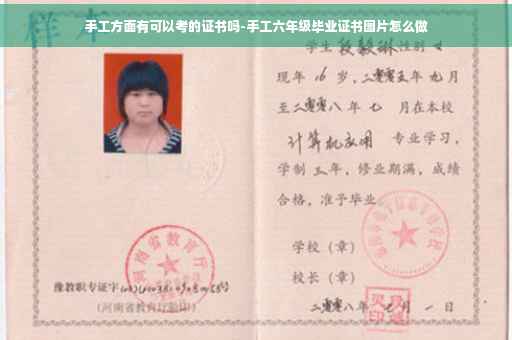 手工方面有可以考的证书吗-手工六年级毕业证书图片怎么做
样本
学生 段毅琳 性别 女
现年 16 岁，二零零五年 九月
至二零零八年 七 月在本校
计算机应用 专业学习，
学制 三年，修业期满，成绩
合格，准予毕业
学校（章）
校长（章）
二零零八年 月 一 日
河南省教育厅
豫教职专证字
（河南省教育厅验印）